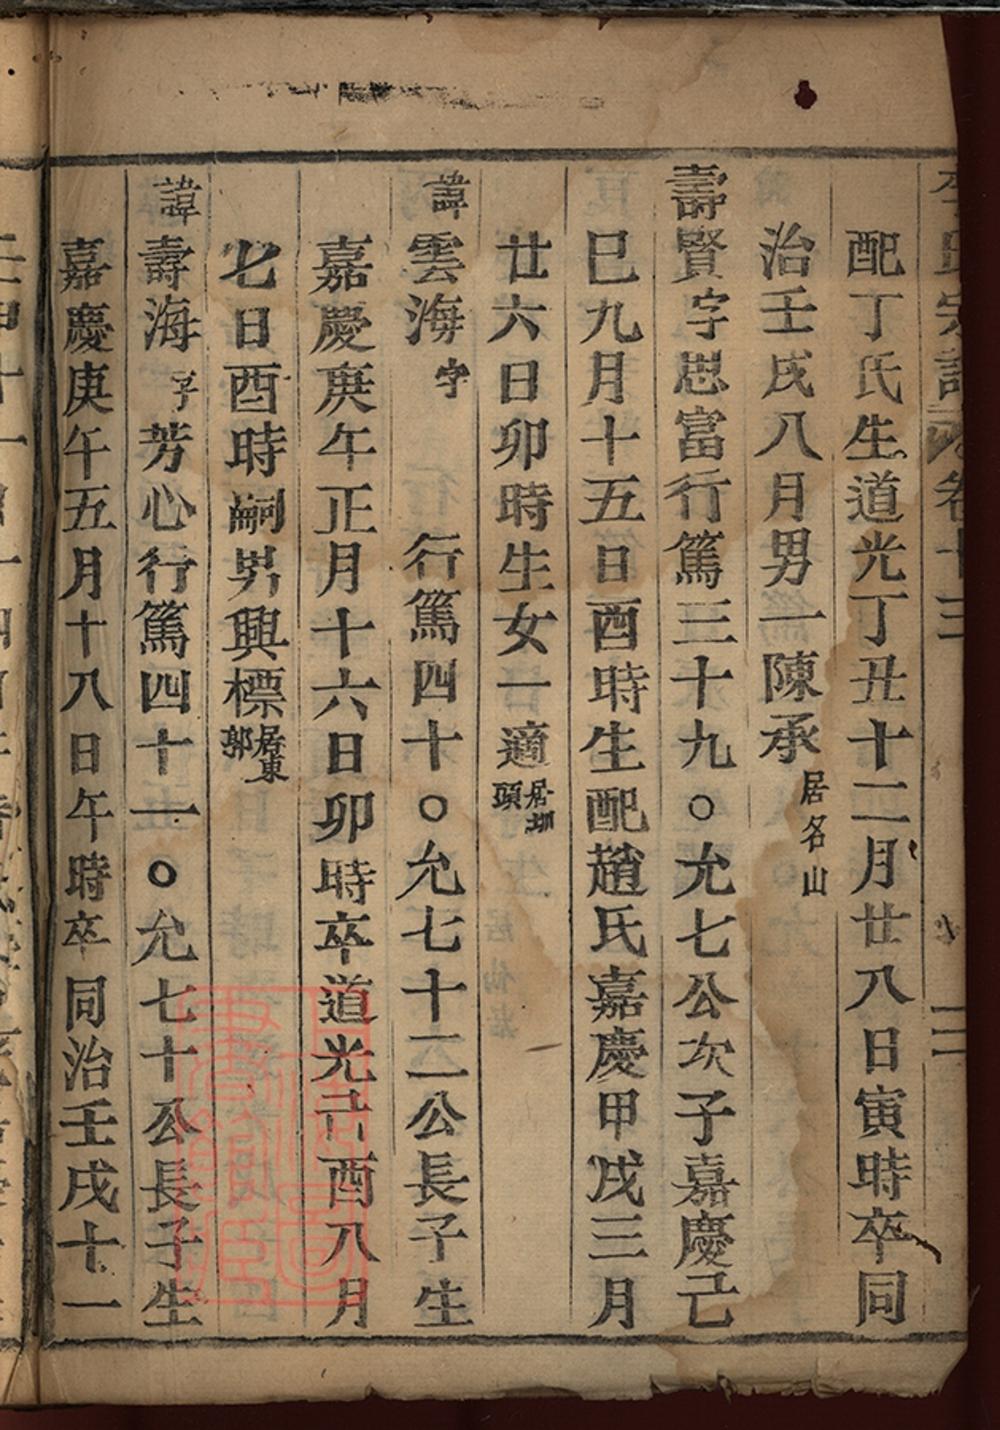 配丁氏生道光丁丑十二月廿八日寅時卒同
治壬戌八月男一陳承居名山
壽賢字思富行篤三十九○允七公次子嘉慶己
巳九月十五日酉時生配趙氏嘉慶甲戌三月
廿六日卯時生女一適居圳頭
諱雲海字 行篤四十○允七十二公長子生
嘉慶庚午正月十六日卯時卒道光己酉八月
七日酉時嗣男興標居東鄉
諱壽海字芳心行篤四十一○允七十公長子生
嘉慶庚午五月十八日午時卒同治壬戌十一